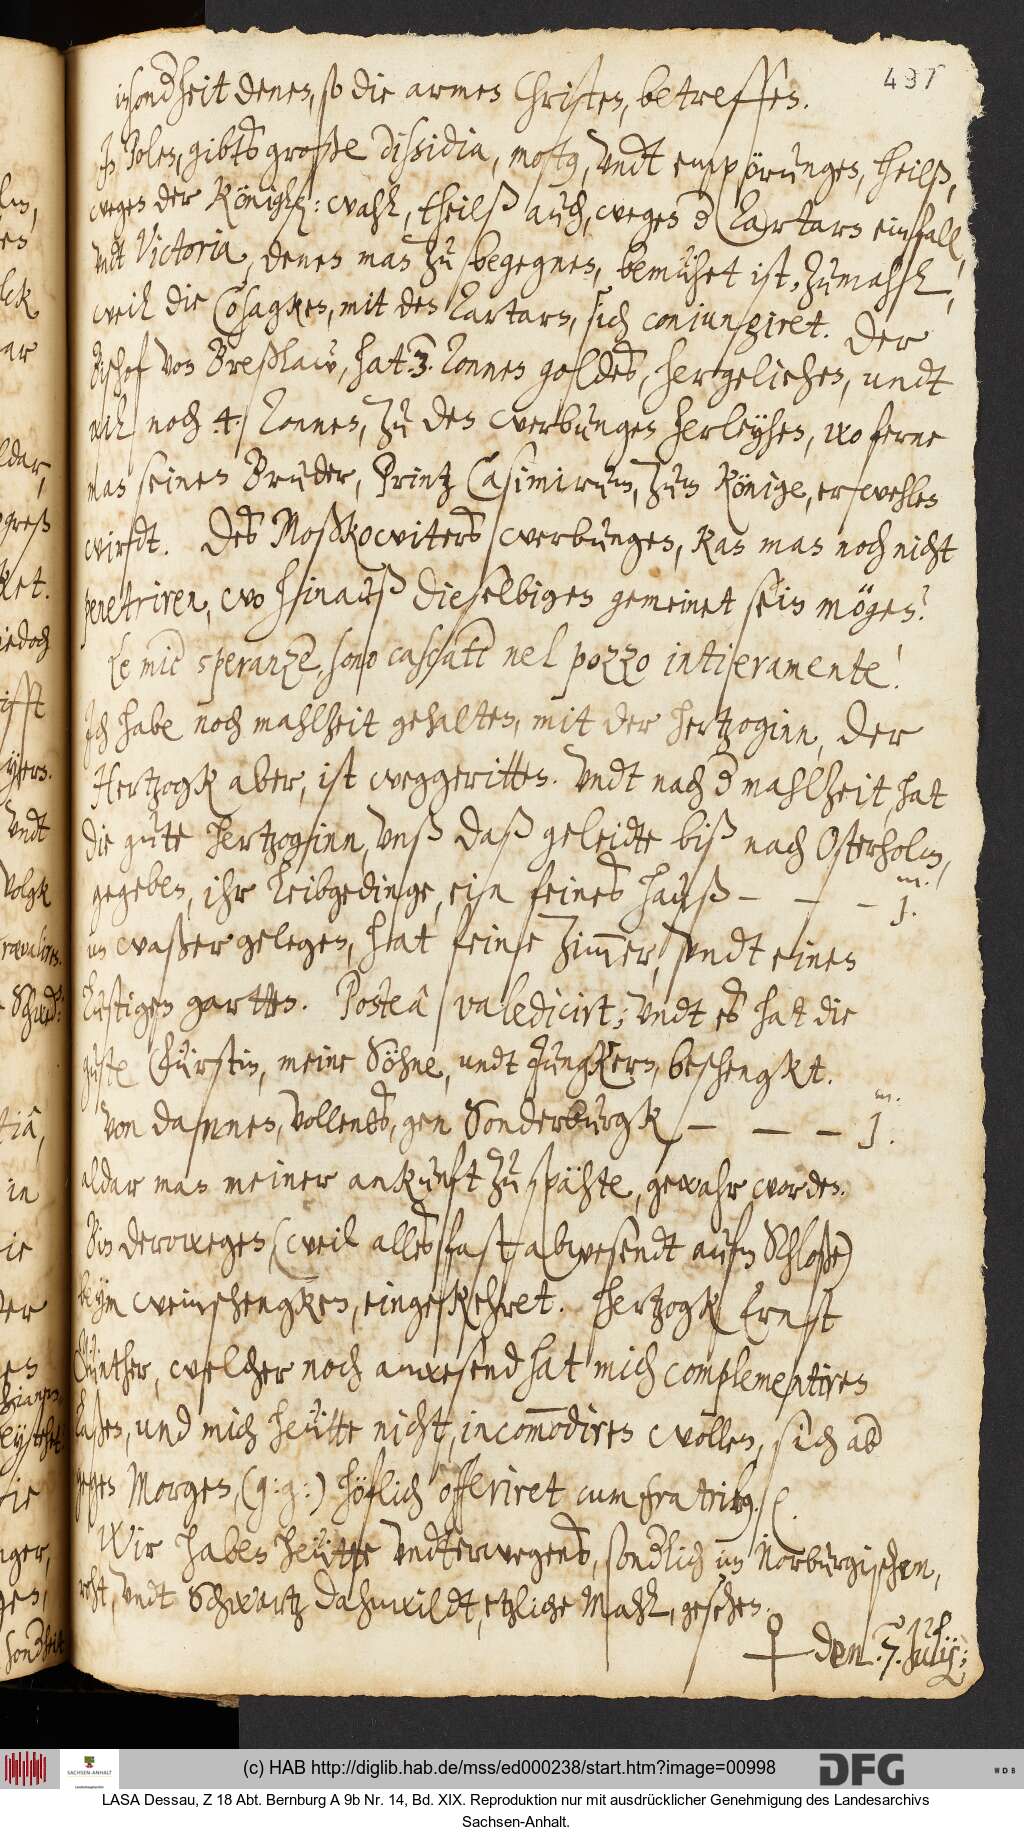 497
insonderheit denen, so die armen Christen, betreffen.
In Polen, gibts große dissidia, motus, undt empörungen, theilß,
wegen der Königl: wahl, theilß auch, wegen der Tartarn einfall,
undt Victoria, denen man zu begegnen, bemühet ist, zumahl,
weil die Cosagken, mit den Tartarn, sich coniungiret. Der
Bischof von Breßlaw, hat .3. Tonnen goldes, hergeliehen, undt
will noch .4. Tonnen, zu den werbungen herleyhen, wo ferne
man seinen Bruder, Printz Casimirum, zum Könige, erwehlen
wirdt. Des Moßkowiters werbungen, kan man noch nicht
penetriren, wo hinauß dieselbigen gemeinet sein mögen?
Le mie speranze, sono cascate nel pozzo intieramente!
Ich habe noch mahlzeit gehalten, mit der hertzoginn, der
Hertzogk aber, ist weggeritten. Undt nach der mahlzeit, hat
die gute Hertzoginn, unß daß geleidte biß nach Osterholm,
gegeben, ihr Leibgedinge, ein feines hauß — — — m. 1.
im waßer gelegen, hat feine Zimmer, undt einen
Lustigen garten. Posteâ valedicirt; undt es hat die
gute Fürstin, meine Söhne, undt Jungkern, beschengkt.
Von dannen, vollends, gen Sonderburgk — — — m. 1.
aldar man meiner ankunft zu spähte, gewahr worden.
Bin derowegen, (weil alles fast abwesendt aufm Schloße)
beym weinschengken, eingekehret. Hertzogk Ernst
Günther, welcher noch anwesend hat mich complementiren
laßen, und mich heütte nicht, incommodiren wollen, sich aber
gegen Morgen, (g: g:) höflich offeriret cum fratribus. /
Wir haben heütte undterwegens, sonderlich im Norburgischen,
roht, undt Schwartz Dahmwildt, etzliche Mahl, gesehen.
den .7. July;
(c) HAB http://diglib.hab.de/mss/ed000238/start.htm?image=00998
SACHSEN-ANHALT
DFG
WDB
LASA Dessau, Z 18 Abt. Bernburg A 9b Nr. 14, Bd. XIX. Reproduktion nur mit ausdrücklicher Genehmigung des Landesarchivs
Sachsen-Anhalt.